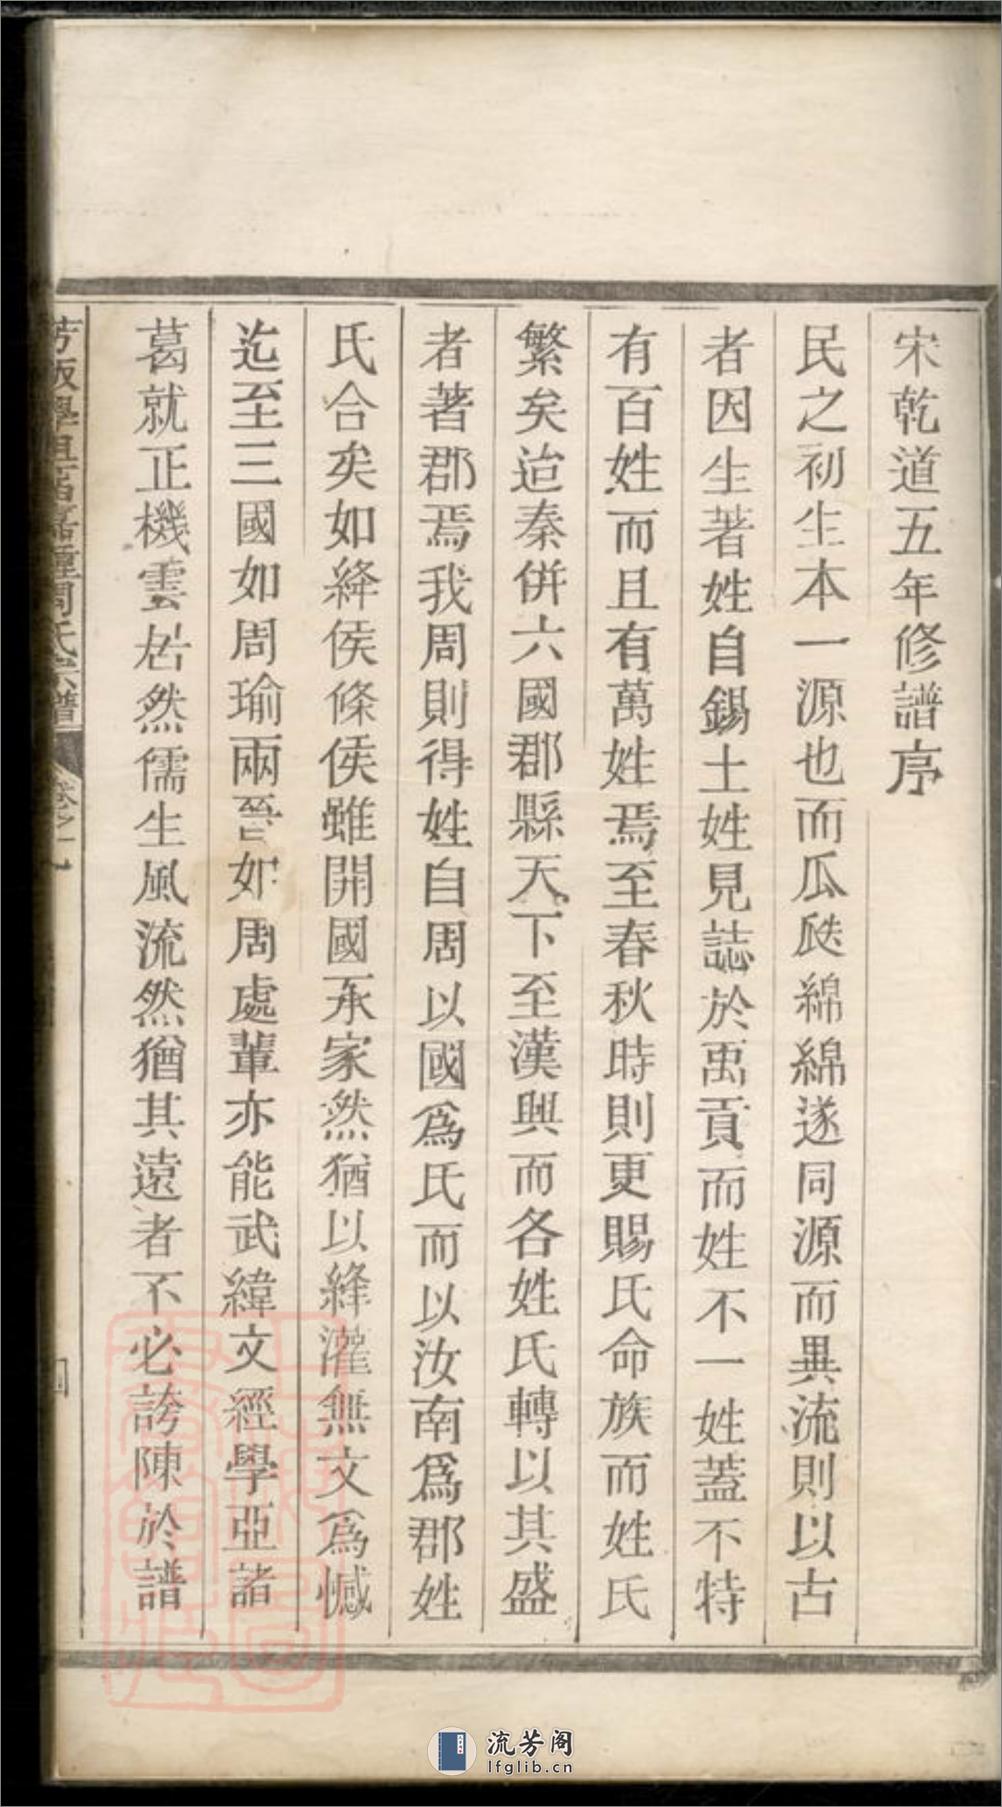 宋乾道五年修譜序
民之初生本一源也而瓜瓞綿綿遂同源而異流則以古
者因生著姓自錫土姓見誌於禹貢而姓不一姓蓋不特
有百姓而且有萬姓焉至春秋時則更賜氏命族而姓氏
繁矣迨秦併六國郡縣天下至漢興而各姓氏轉以其盛
者著郡焉我周則得姓自周以國爲氏而以汝南爲郡姓
氏合矣如絳侯條侯雖開國承家然猶以絳灌無文爲憾
迄至三國如周瑜兩晉如周處輩亦能武緯文經學亞諸
葛就正機雲居然儒生風流然猶其遠者不必誇陳於譜
周氏宗譜
卷之一
流芳阁
lfglib.cn